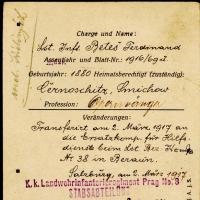 Charge und Name:
Lst. Inft. Beleš Ferdinand
Assentjahr und Blatt-Nr.: 1916/69
Geburtsjahr: 1880 Heimatsberechtigt (zuständig):
Černoschitz, Smichow
Profession:
Veränderungen:
Transferirt am 2. März 1917 an
die Ersatzkomp. für Hilfs-
dienste beim Lst. Bez. Komdo
Nr 38 in Beraun.
Salzburg, am 2. März 1917
K. k. Landwehrinfanterieregiment Prag No. 8
STABSABTEILUNG